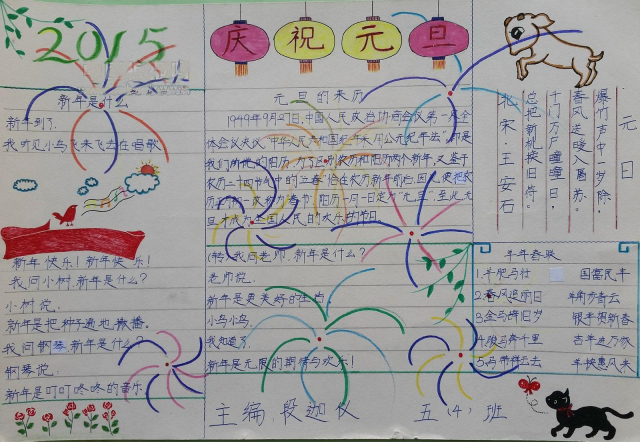 2015
庆祝元旦
新年是什么
新年到了.
我听见小鸟飞来飞去在唱歌
新年快乐!新年快乐!
我问小树.新年是什么?
小树说.
新年是把种子遍地撒播.
我问钢琴 新年是什么?
钢琴说.
新年是叮叮咚咚的音乐
元旦的来历
1949年9月27日,中国人民政治协商会议第一届全
体会议决议"中华人民共和国纪年采用公元纪年法".即是
我们所说的阳历.为了区别农历和阳历两个新年,又鉴于
农历二十四节气中的"立春"恰在农历新年前后,因此便把农
历正月初一改称为"春节",阳历一月一日定为"元旦",至此,元
旦才成为全国人民的欢乐节日.
(转)我问老师.新年是什么?
老师说.
新年是更美好的生活
小鸟小鸟.
我知道了
新年是无限的期待与欢乐!
元日
爆竹声中一岁除.
春风送暖入屠苏.
千门万户曈曈日.
总把新桃换旧符.
北宋·王安石
羊年春联
1.羊肥马壮 国富民丰
2.春风送丽日 羊角步青云
3.金马辞旧岁 银羊贺新春
4.骏马奔千里 吉羊进万家
5.马带祥云去 羊挟惠风来
主编.段迦仪 五(4)班